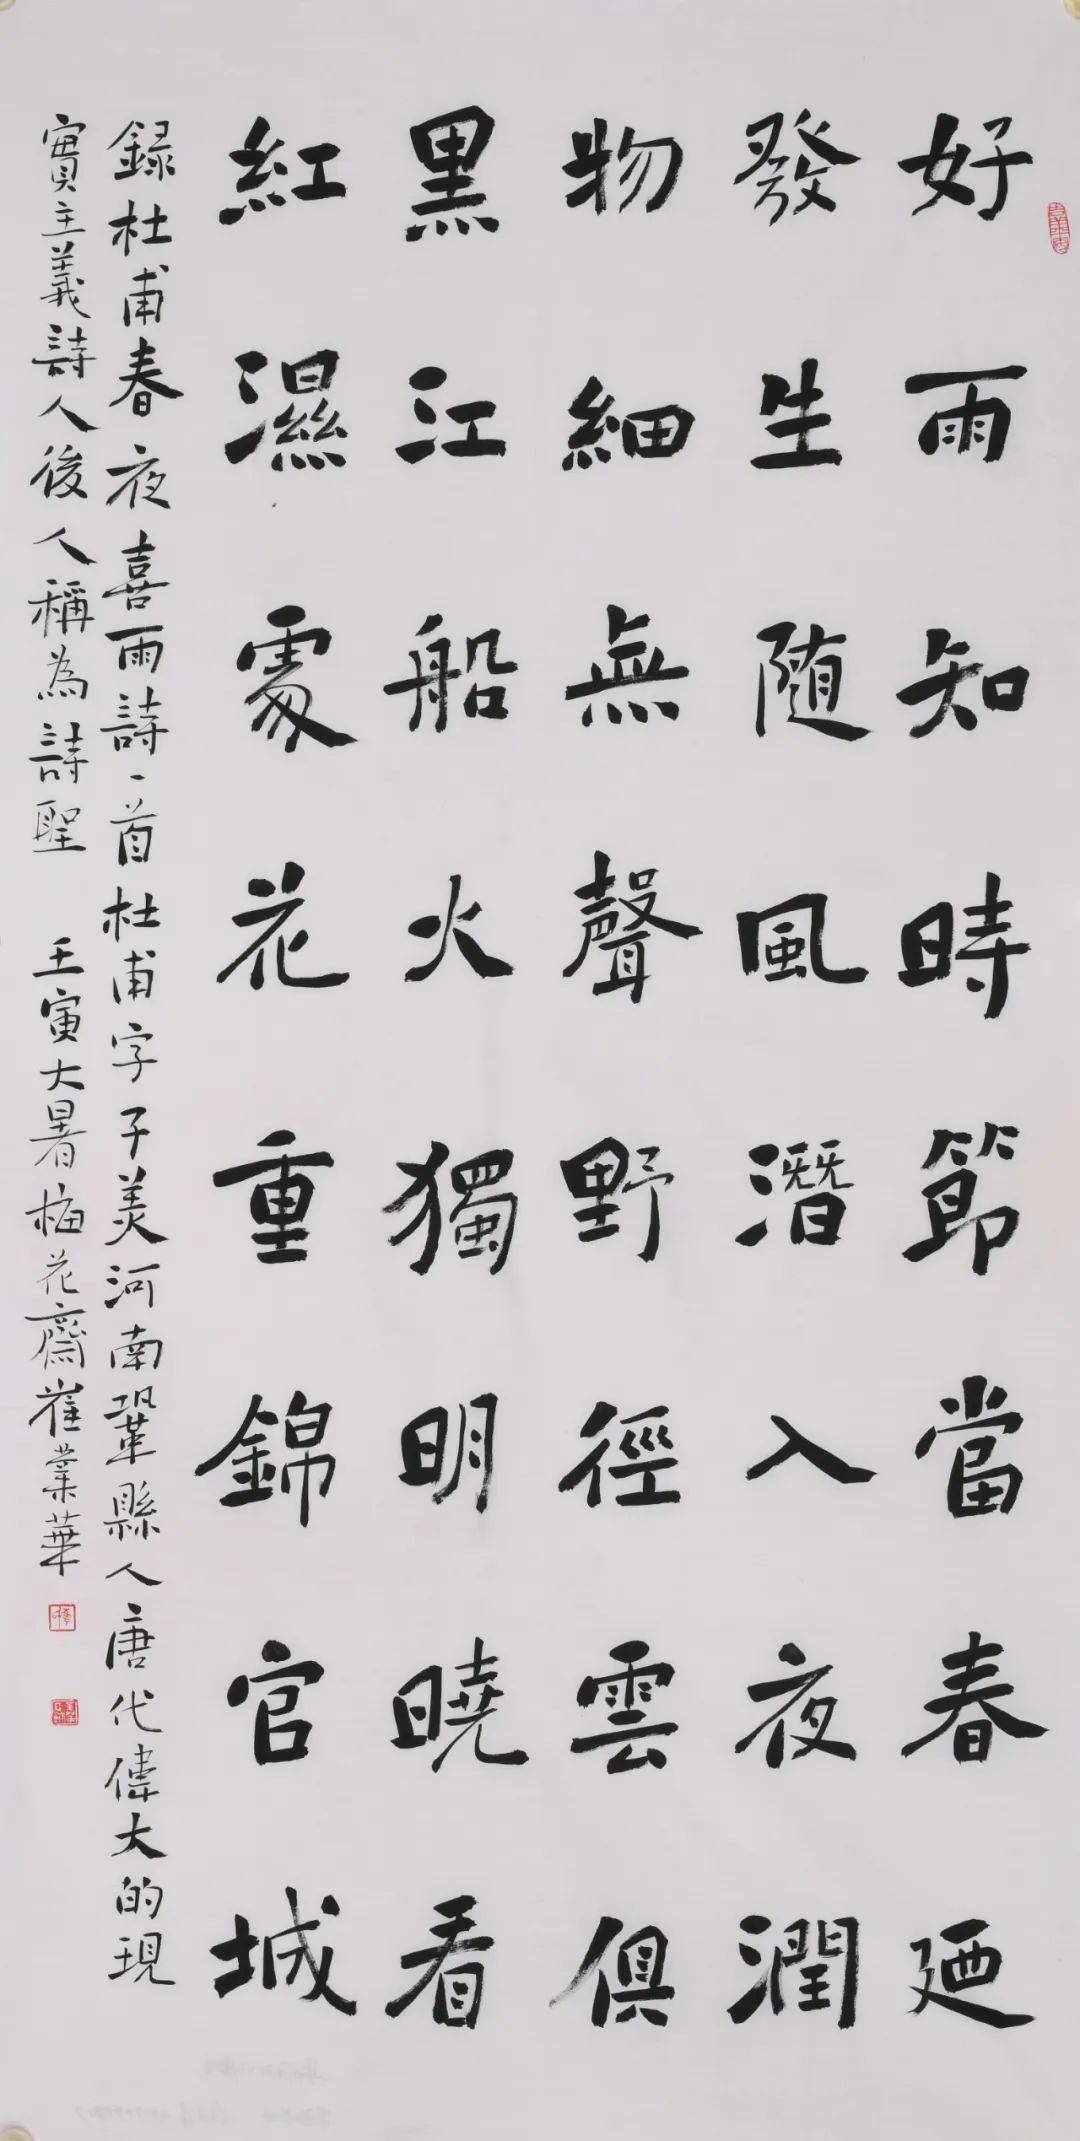 好雨知時節當春廼
發生随風潛入夜潤
物細無聲野徑雲俱
黑江船火獨明曉看
紅濕處花重錦官城
録杜甫春夜喜雨詩一首杜甫字子美河南鞏縣人唐代偉大的現
實主義詩人後人稱為詩聖 壬寅大暑梅花齋崔業華